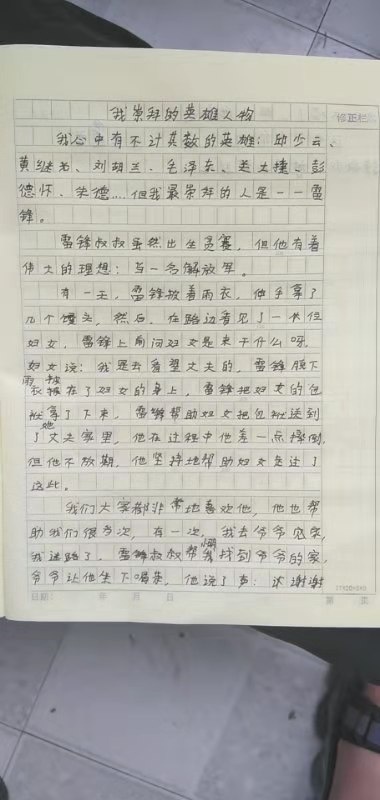 我崇拜的英雄人物
修正栏
我心中有不计其数的英雄：邱少云、
黄继光、刘胡兰、毛泽东、、彭
德怀、朱德....但我最崇拜的人是一一雷
锋。
雷锋叔叔虽然出生贫寒，但他有着
伟大的理想：当一名解放军。
有一天，雷锋披着雨衣，伸手拿了
几个馒头，然后，在路边看见了一位
妇女，雷锋上前问妇女是来干什么呀，
妇女说：我是去看望丈夫的，雷锋脱下
雨 被
衣披在了妇女的身上，雷锋把妇女的包
袱拿了下来，雷锋帮助妇女把包袱送到
她
了丈夫家里，他在过程中他差一点摔倒，
但他不放期，他坚持地帮助妇女走过了
这些。
我们大家都非帮地喜欢他，他也帮
助我们很多次，有一次，我去爷爷见家，
我迷路了，雷锋叔叔帮我找到爷爷的家，
爷爷让他坐下喝茶，他说了声：谢谢
日期： 年 月 日
第 页